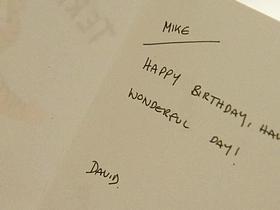 MIKE
HAPPY BIRTHDAY, HAV
WONDERFUL DAY!
DAVID.